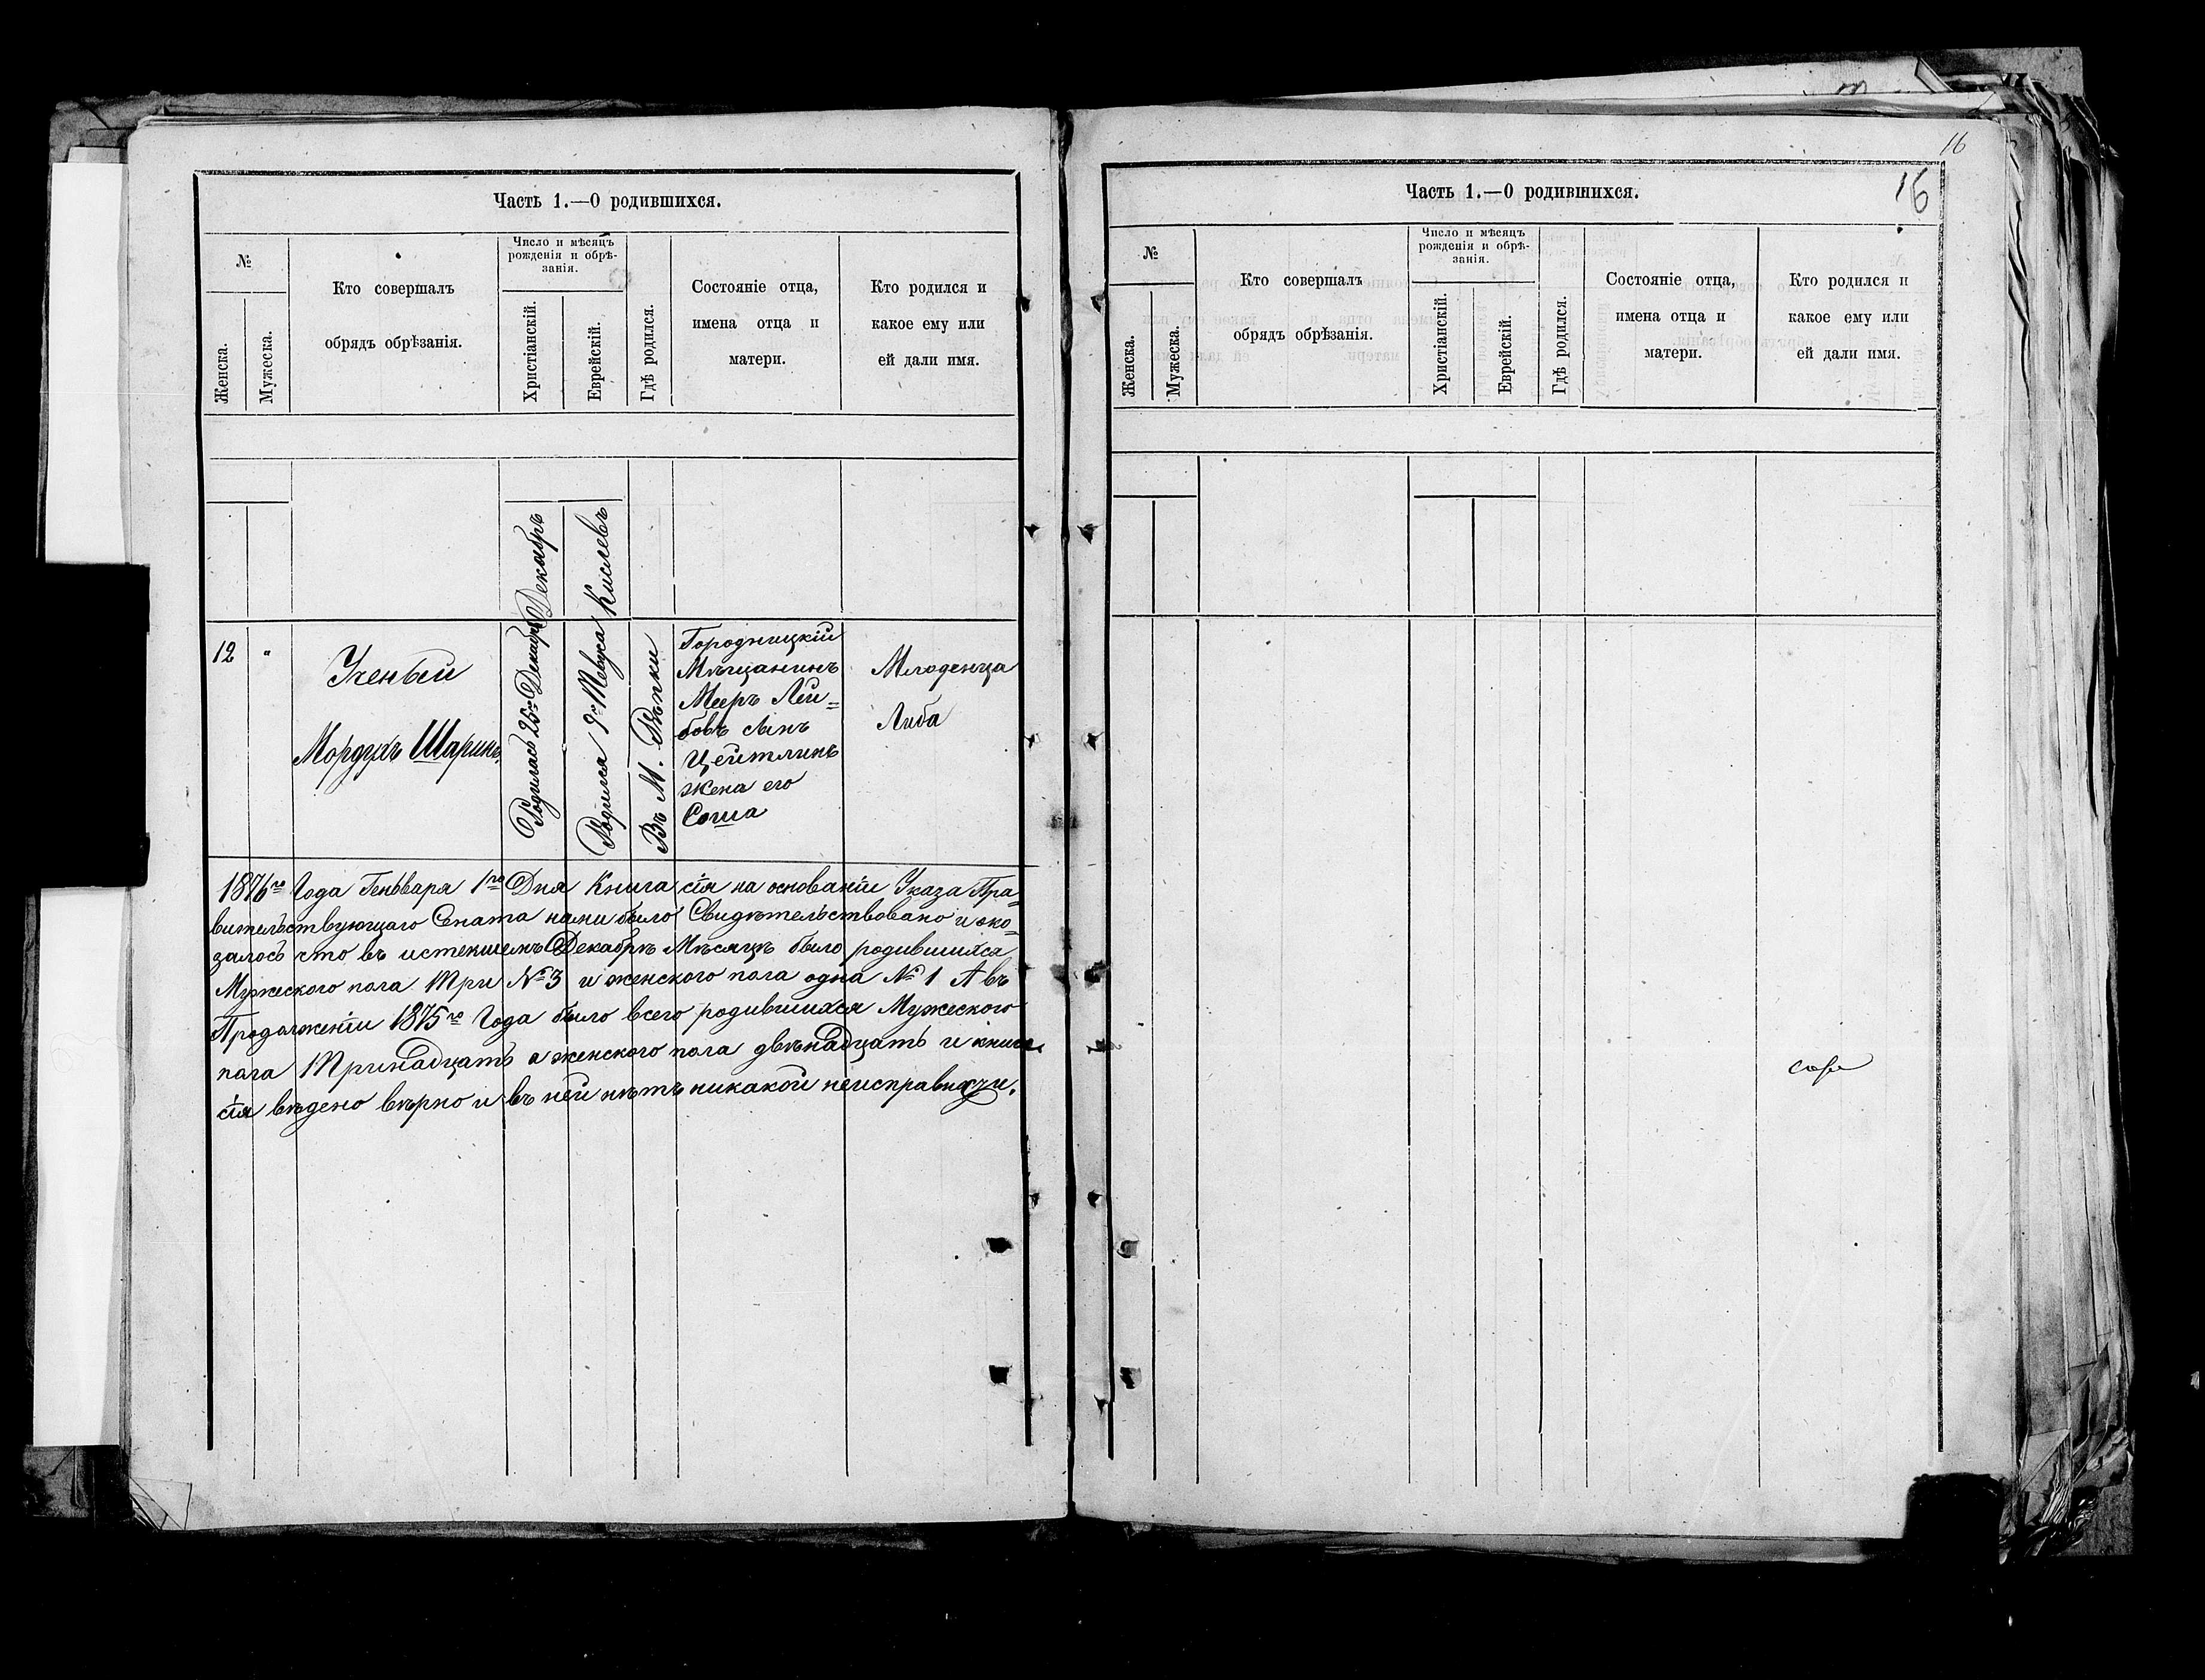 Часть 1.—О родившихся.
№
Женска.
Мужеска.
Кто совершалъ
обрядъ обрѣзанія.
Число и мѣсяцъ
рожденія и обрѣ-
занія.
Христіанскій.
Еврейскій.
Гдѣ родился.
Состояніе отца,
имена отца и
матери.
Кто родился и
какое ему или
ей дали имя.
Декабрь
Кислевъ
12
"
Ученый
Мордухъ Шаринъ
Родилась 25го Декабря
Родился 9го Тевуса
Въ М.
Городницкій
Мѣщанинъ
Мееръ Лей=
бовъ сынъ
Цейтлинъ
жена его
Соша
Младенца
Либа
1876го Года Генваря 1го Дня Книга сія на основаніи Указа Пра=
вительствующаго Сената нами было Свидѣтельствовано и ока=
залось сто въ истекшемъ Декабрѣ Мѣсяцѣ было родившихся
Мужеского пола Три №3 и женского пола одна №1 А въ
Продолженіи 1875го Года было всего родившихся Мужеского
пола Тринадцать а женского пола двѣнадцать и книга
сія вѣдено вѣрно и въ ней нѣтъ никакой неисправности.
16
16
Часть 1.—О родившихся.
№
Женска.
Мужеска.
Кто совершалъ
обрядъ обрѣзанія.
Число и мѣсяцъ
рожденія и обрѣ-
занія.
Христіанскій.
Еврейскій.
Гдѣ родился.
Состояніе отца,
имена отца и
матери.
Кто родился и
какое ему или
ей дали имя.